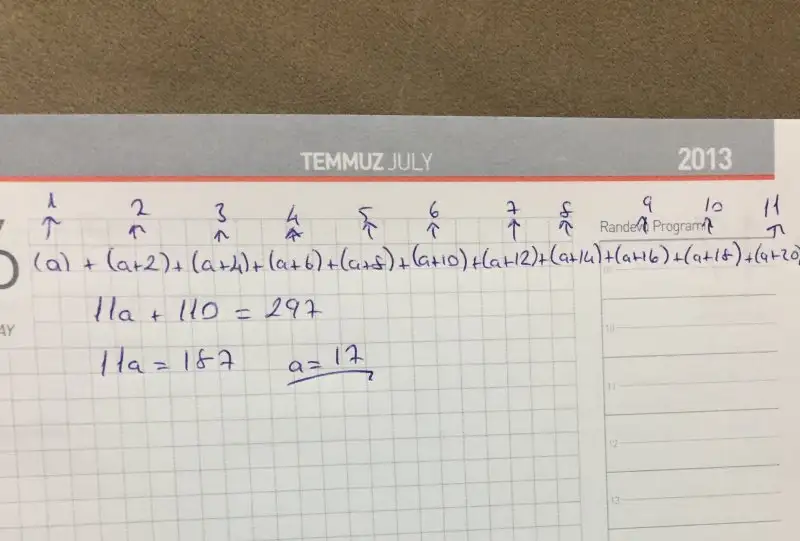 TEMMUZ JULY 2013
1 2 3 4 5 6 7 8 9 10 11
↑ ↑ ↑ ↑ ↑ ↑ ↑ ↑ ↑ ↑ ↑
Randevu Programı
(a) + (a+2) + (a+4) + (a+6) + (a+8) + (a+10) + (a+12) + (a+14) + (a+16) + (a+18) + (a+20)
11a + 110 = 297
AY
10
11a = 187 a = 17
11
12
13